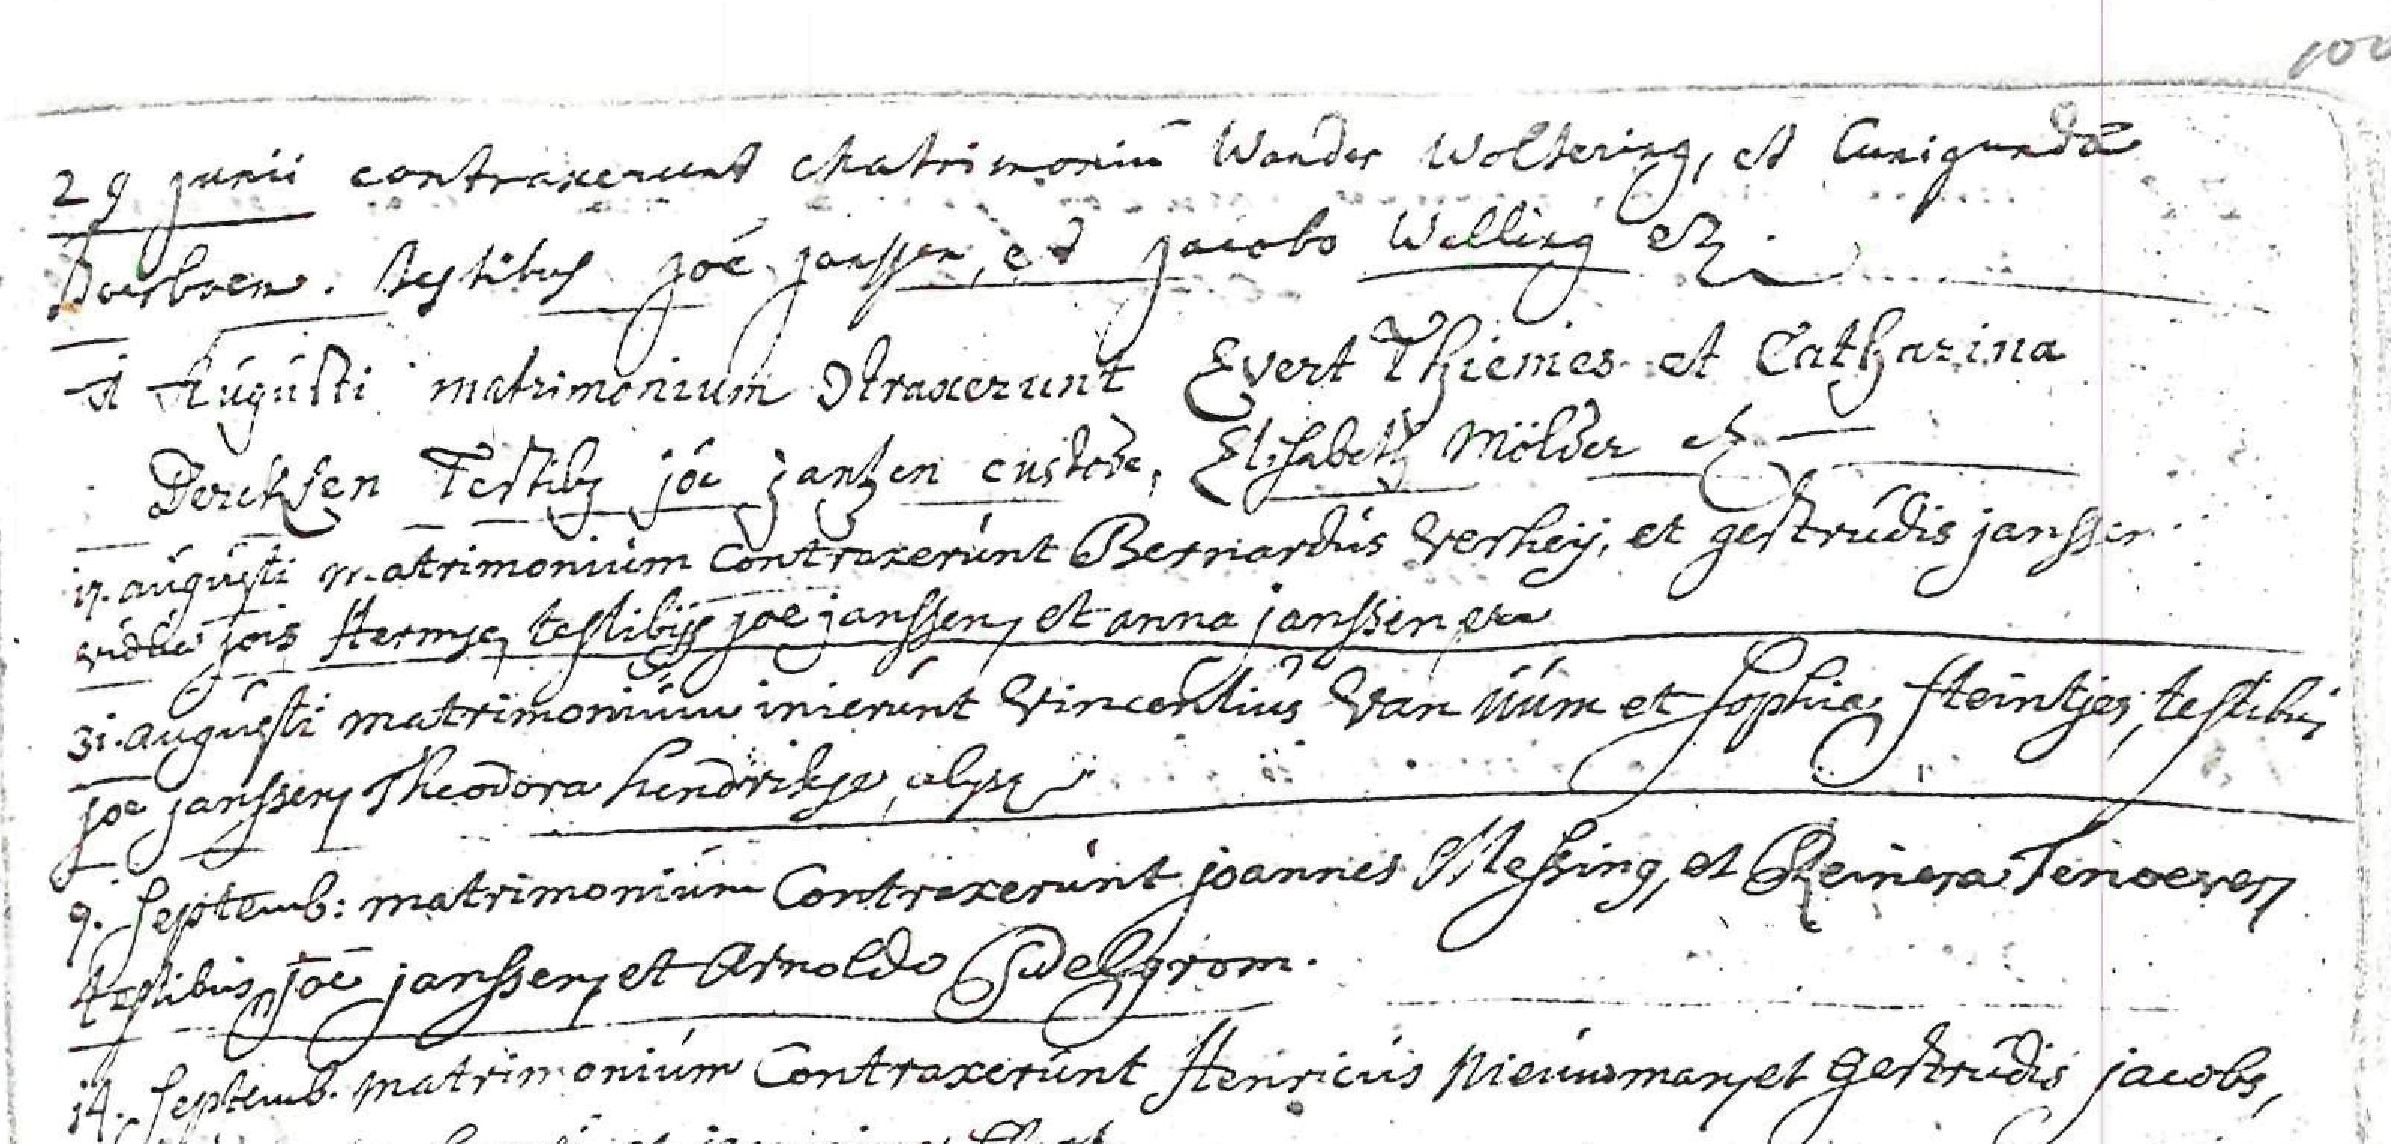 100
29 junii contraxerunt Matrimoniū Wander Woltering, et Cunigunda
Doerboem. testibus Joē janssen, et Jacobo Welling etc.
Augústi matrimonium Ↄtraxerunt Evert Thiemes et Catharina
Dercksen Testibz joē janzen custode, Elisabeth Mölder etc
17. augústi matrimoniúm Contraxerúnt Bernardús Verheij, et gertrúdis janssen
vidua jois Hermse, testibus joe janssen, et anna janssen etc
31. augústi matrimoniúm inierúnt Vincentiús Van Uúm et Sophia Steintjes, testibus
joē janssen, Theodora hendrikse, alysq
9. Septemb: matrimoniúm Contraxerúnt joannes Messing, et Reinera Tenoever
testibus joē janssen, et Arnoldo Swelgrom.
14. Septemb. matrimoniúm Contraxerúnt Henricús Nieúwman, et Gertrúdis jacobs,